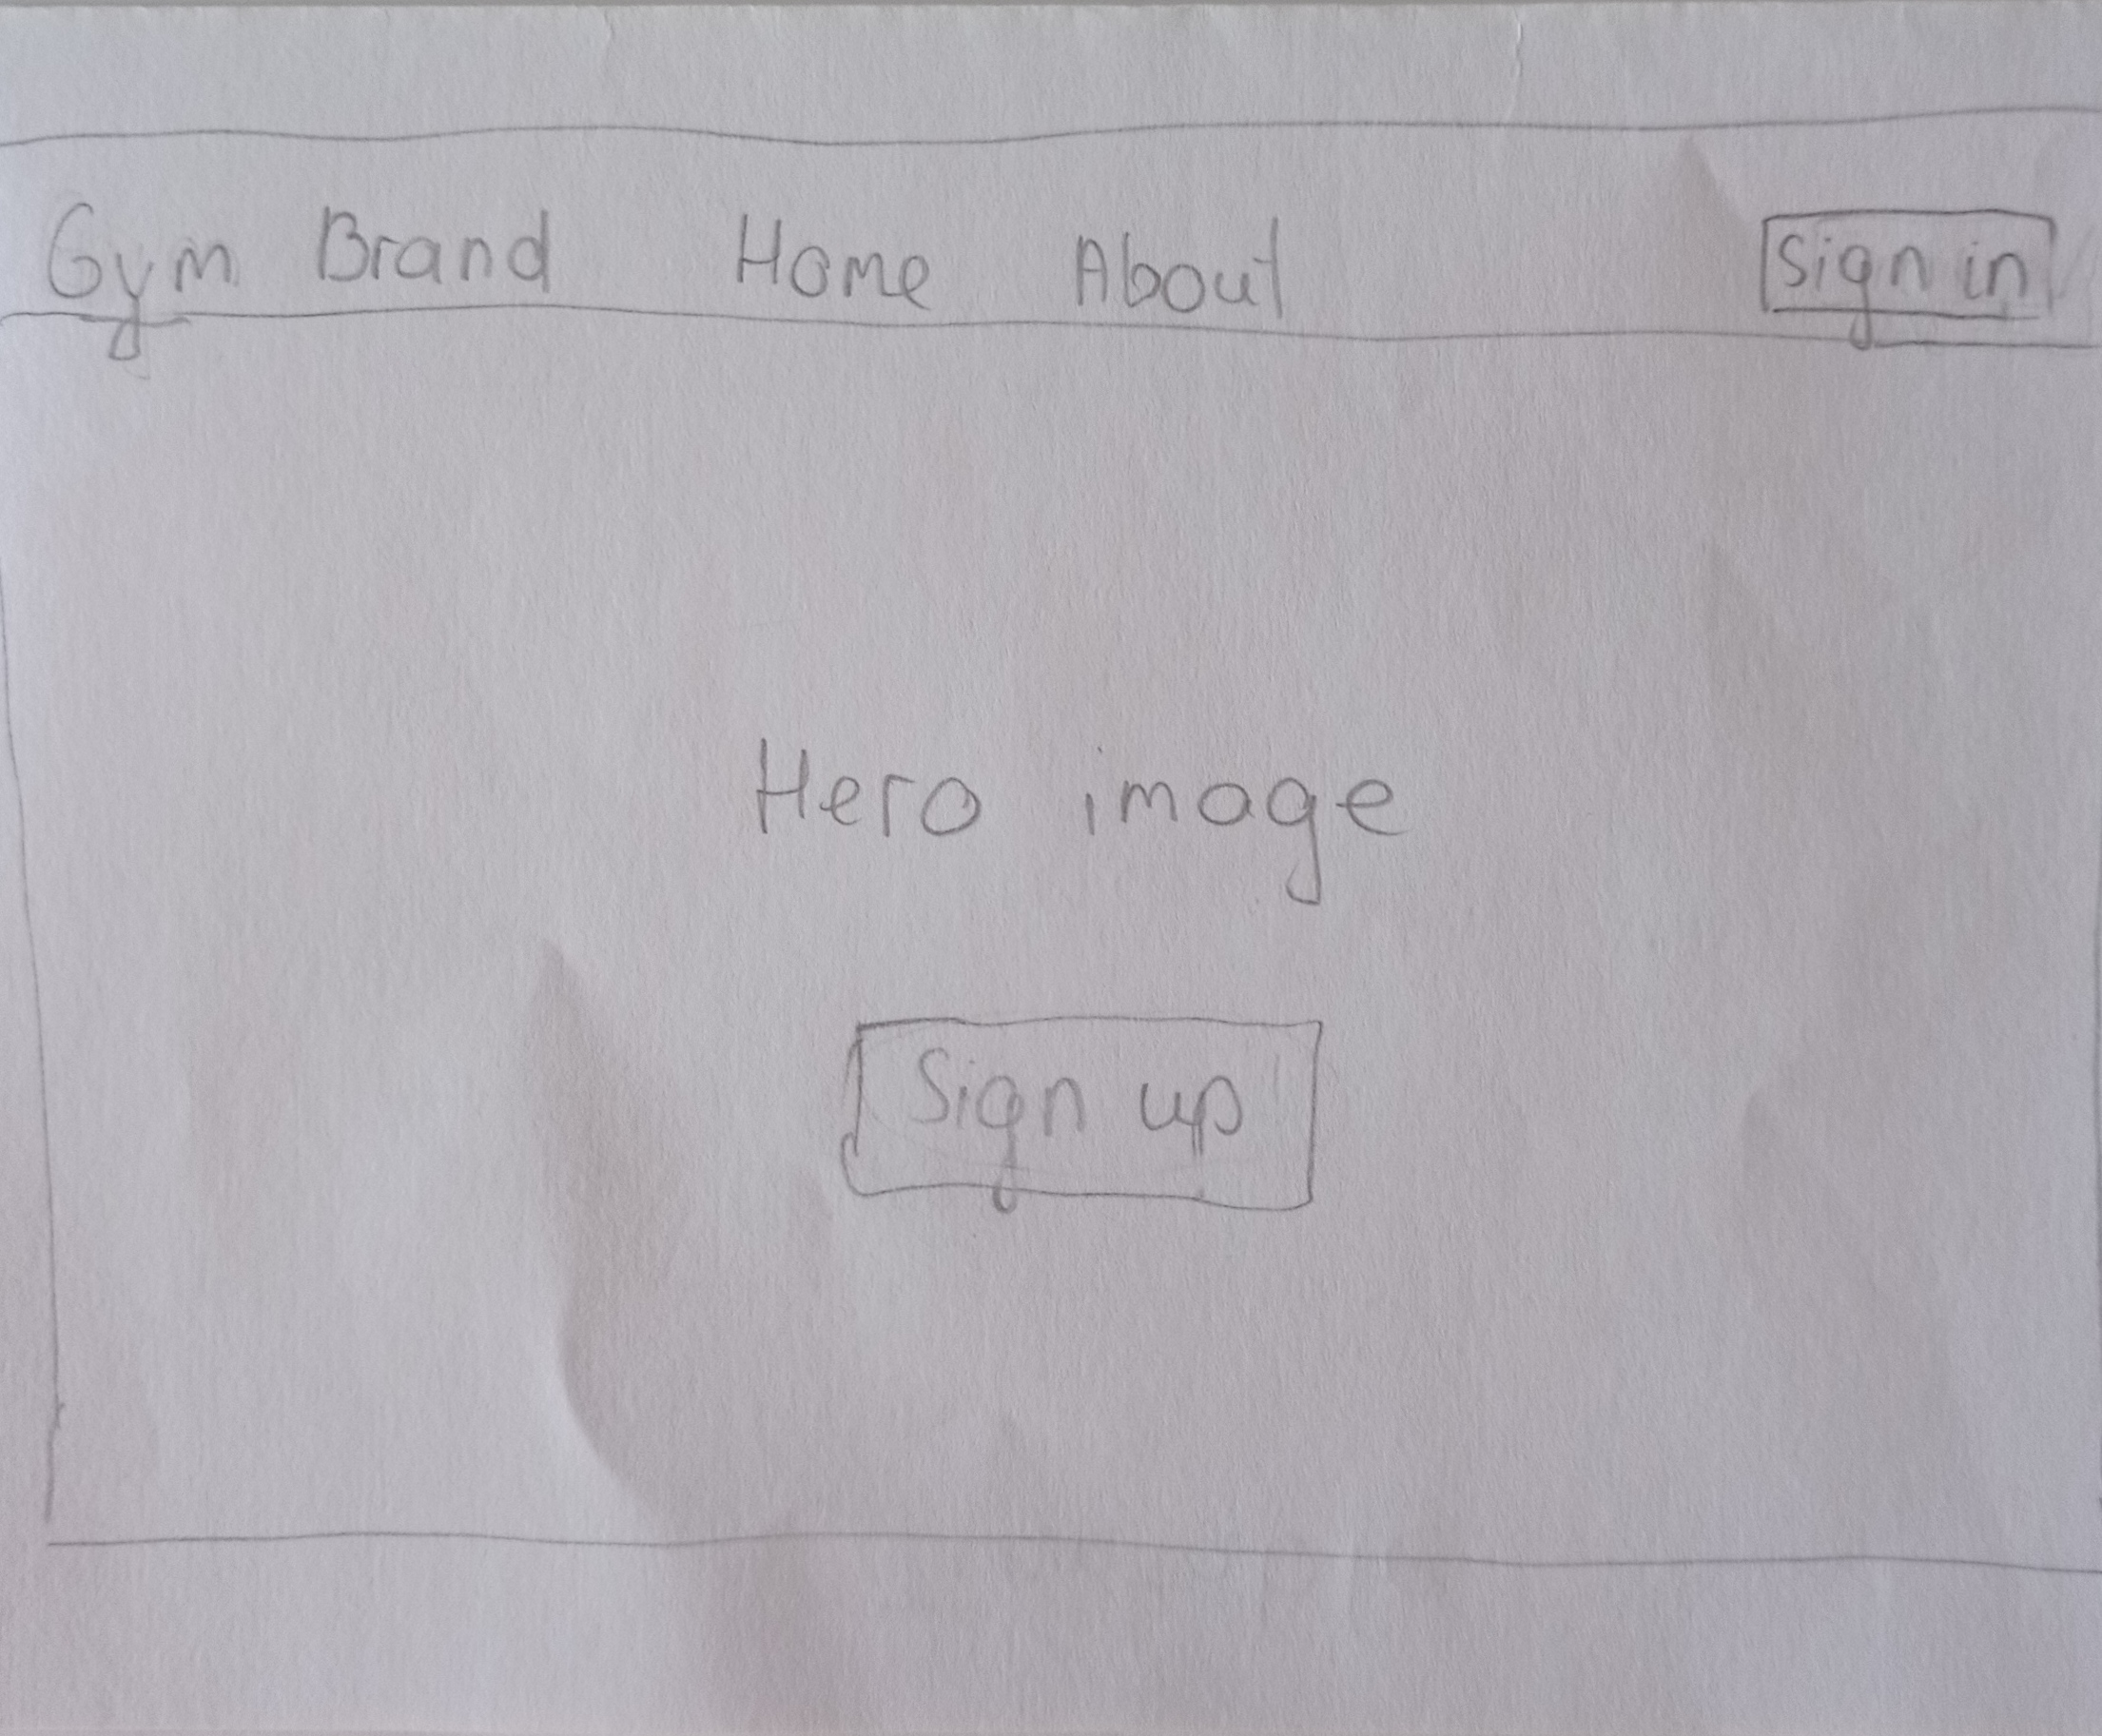 Gym Brand Home About Sign in
Hero image
Sign up